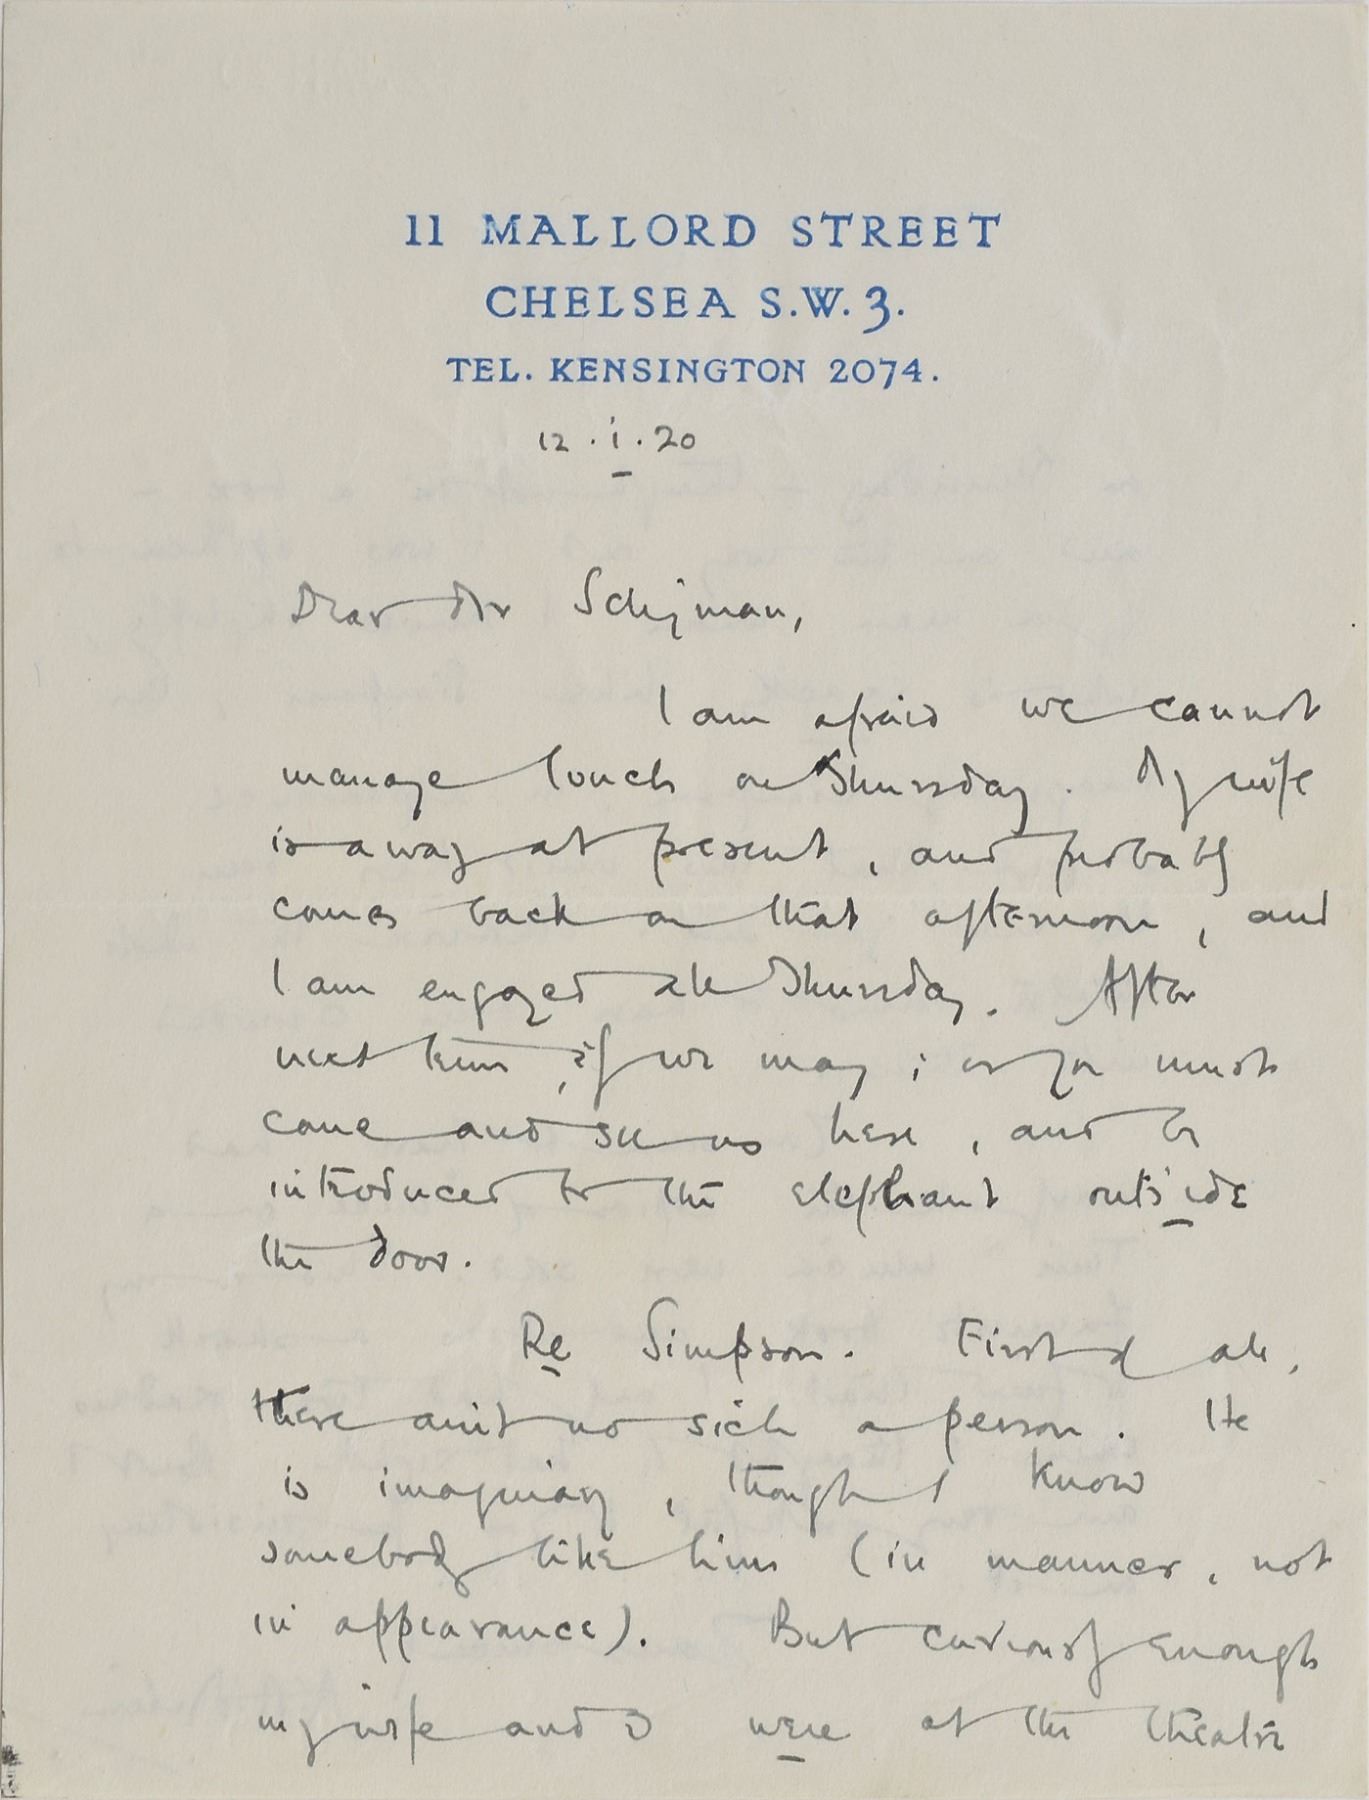 11 MALLORD STREET
CHELSEA S.W. 3.
TEL. KENSINGTON 2074.
12 . i . 20
Dear Mr Schijman,
I am afraid we cannot
manage lunch on Thursday. My wife
is away at present, and probably
comes back on that afternoon, and
I am engaged all Thursday. After
next time, if we may; or you must
come and see us here, and be
introduced to the elephant outside
the door.
Re Simpson. First of all,
there ain't no sich a person. He
is imaginary, though I know
somebody like him (in manner, not
in appearance). But curiously enough
my wife and I were at the theatre